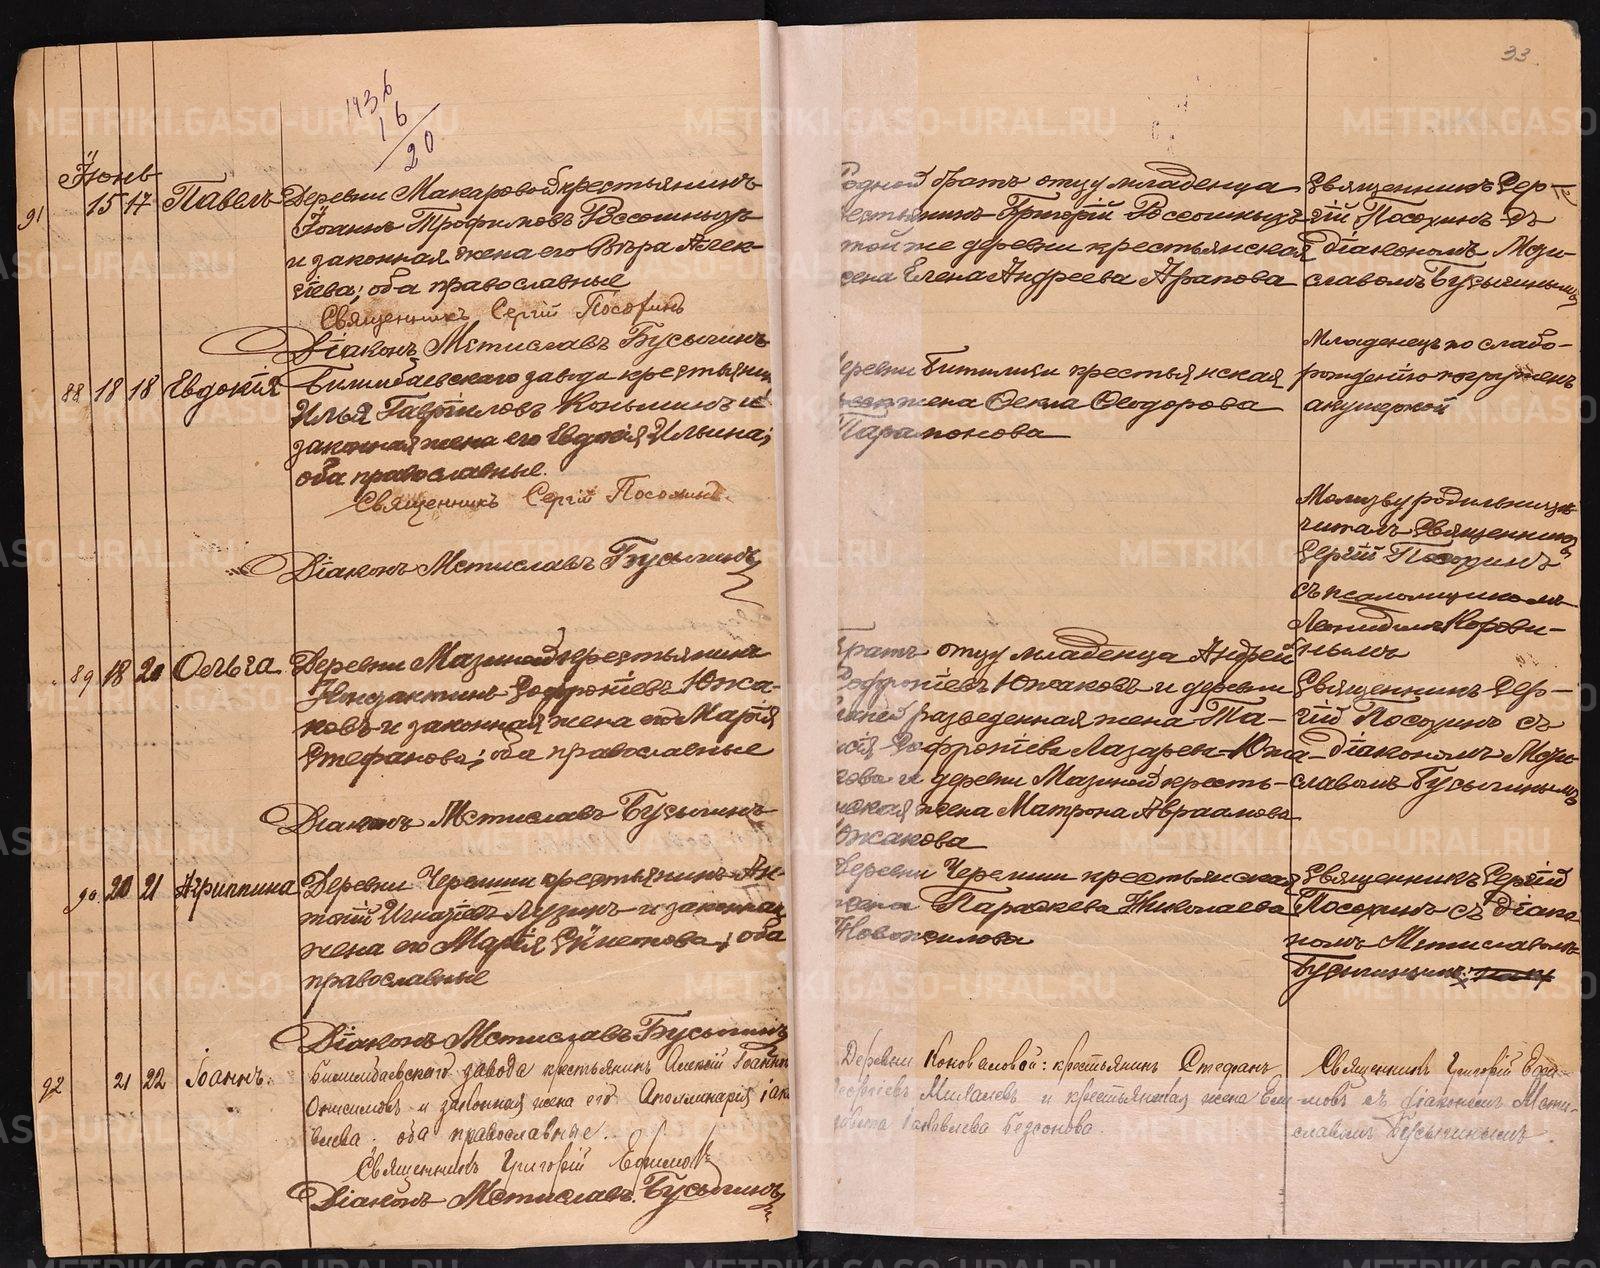 33
1436
16
20
Іюнь
91 15 17 Павелъ Деревни Макаровой крестьянинъ
Іоаннъ Трофимовъ Россошныхъ
и законная жена его Вѣра Алек-
сіева; оба православные
Священникъ Сергій Посохинъ
Діаконъ Мстиславъ Бусыгинъ
Родной братъ отцу младенца
крестьянинъ Григорій Россошныхъ
той же деревни крестьянская
жена Елена Андреева Арапова
Священникъ Сер-
гій Посохинъ съ
діакономъ Мсти-
славомъ Бусыгинымъ
88 18 18 Евдокія Билимбаевскаго завода крестьянинъ
Илья Гавріиловъ Коньшинъ и
законная жена его Евдокія Ильина;
оба православные.
Священникъ Сергій Посохинъ.
Діаконъ Мстиславъ Бусыгинъ
Деревни Битимки крестьянская
жена Ѳекла Ѳеодорова
Парамонова
Младенецъ по слабо-
рожденію погруженъ
акушеркой
Молитву родильницѣ
читалъ Священникъ
Сергій Посохинъ
съ псаломщикомъ
Леонидомъ Корови-
нымъ
89 18 20 Ольга Деревни Мазиной крестьянинъ
Софроніевъ Южа-
ковъ и законная жена его Марія
Стефанова; оба православные
Діаконъ Мстиславъ Бусыгинъ
Братъ отцу младенца Андрей
Софроніевъ Южаковъ и деревни
разведенная жена Та-
Софроніева Лазарева-Южа-
кова и деревни Мазиной кресть-
янская жена Матрона Авраамова
Южакова
Священникъ Сер-
гій Посохинъ съ
діакономъ Мсти-
славомъ Бусыгинымъ
90 20 21 Агриппина Деревни Черемши крестьянинъ Ан-
тоній Игнатіевъ Лузинъ и законная
жена его Марія ; оба
православные
Діаконъ Мстиславъ Бусыгинъ
Деревни Черемши крестьянская
жена Параскева Николаева
Новожилова
Священникъ Сергій
Посохинъ съ діако-
номъ Мстиславомъ
Бусыгинымъ.
92 21 22 Іоаннъ. Билимбаевскаго завода крестьянинъ Алексій Іоаннъ
Онисимовъ и законная жена его Аполлинарія Іако-
влева. оба православные.
Священникъ Григорій Ефимовъ
Діаконъ Мстиславъ Бусыгинъ
Деревни Коноваловой: крестьянинъ Стефанъ
Георгіевъ Михалевъ и крестьянская жена Ели-
савета Іаковлева Безсонова.
Священникъ Григорій Ефи-
мовъ съ діакономъ Мсти-
славомъ Бусыгинымъ.
METRIKI.GASO-URAL.RU